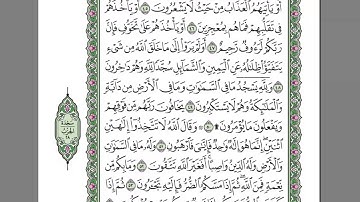 أَوْ يَأْتِيَهُمُ ٱلْعَذَابُ مِنْ حَيْثُ لَا يَشْعُرُونَ ٤٥ أَوْ يَأْخُذَهُمْ
فِى تَقَلُّبِهِمْ فَمَا هُم بِمُعْجِزِينَ ٤٦ أَوْ يَأْخُذَهُمْ عَلَىٰ تَخَوُّفٍ فَإِنَّ
رَبَّكُمْ لَرَءُوفٌ رَّحِيمٌ ٤٧ أَوَلَمْ يَرَوْا۟ إِلَىٰ مَا خَلَقَ ٱللَّهُ مِن شَىْءٍ
يَتَفَيَّؤُا۟ ظِلَـٰلُهُۥ عَنِ ٱلْيَمِينِ وَٱلشَّمَآئِلِ سُجَّدًا لِّلَّهِ وَهُمْ دَٰخِرُونَ
٤٨ وَلِلَّهِ يَسْجُدُ مَا فِى ٱلسَّمَـٰوَٰتِ وَمَا فِى ٱلْأَرْضِ مِن دَآبَّةٍ
وَٱلْمَلَـٰٓئِكَةُ وَهُمْ لَا يَسْتَكْبِرُونَ ٤٩ يَخَافُونَ رَبَّهُم مِّن فَوْقِهِمْ
وَيَفْعَلُونَ مَا يُؤْمَرُونَ ۩ ٥٠ وَقَالَ ٱللَّهُ لَا تَتَّخِذُوٓا۟ إِلَـٰهَيْنِ
ٱثْنَيْنِ إِنَّمَا هُوَ إِلَـٰهٌ وَٰحِدٌ فَإِيَّـٰىَ فَٱرْهَبُونِ ٥١ وَلَهُۥ مَا فِى ٱلسَّمَـٰوَٰتِ
وَٱلْأَرْضِ وَلَهُ ٱلدِّينُ وَاصِبًا أَفَغَيْرَ ٱللَّهِ تَتَّقُونَ ٥٢ وَمَا بِكُم مِّن
نِّعْمَةٍ فَمِنَ ٱللَّهِ ثُمَّ إِذَا مَسَّكُمُ ٱلضُّرُّ فَإِلَيْهِ تَجْـَٔرُونَ ٥٣ ثُمَّ إِذَا